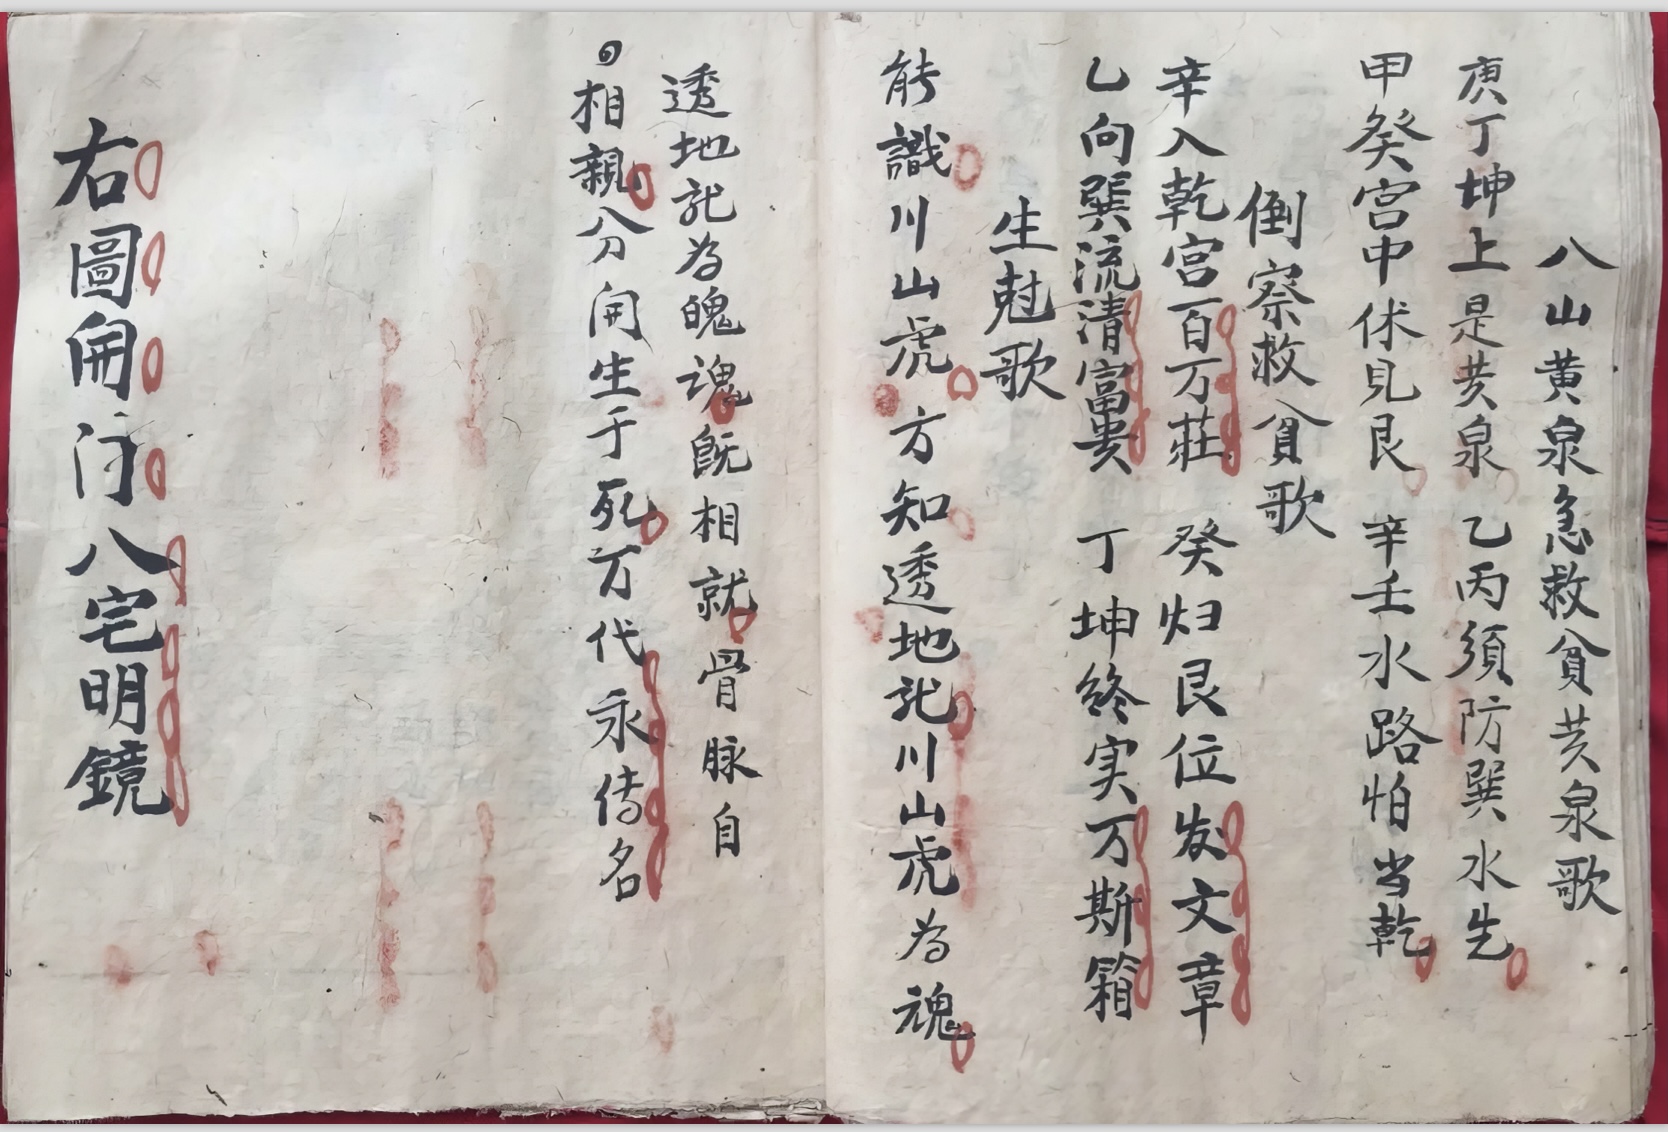 八山黄泉急救貧黄泉歌
庚丁坤上是黄泉 乙丙須防巽水先
甲癸宮中休見艮 辛壬水路怕当乾
倒察救貧歌
辛入乾宮百万莊 癸归艮位发文章
乙向巽流清富贵 丁坤終实万斯箱
生尅歌
能識川山虎方知透地龙川山虎為魂
透地龙為魄魂既相就骨脉自
相親分開生于死万代永传名
右圖開门八宅明鏡